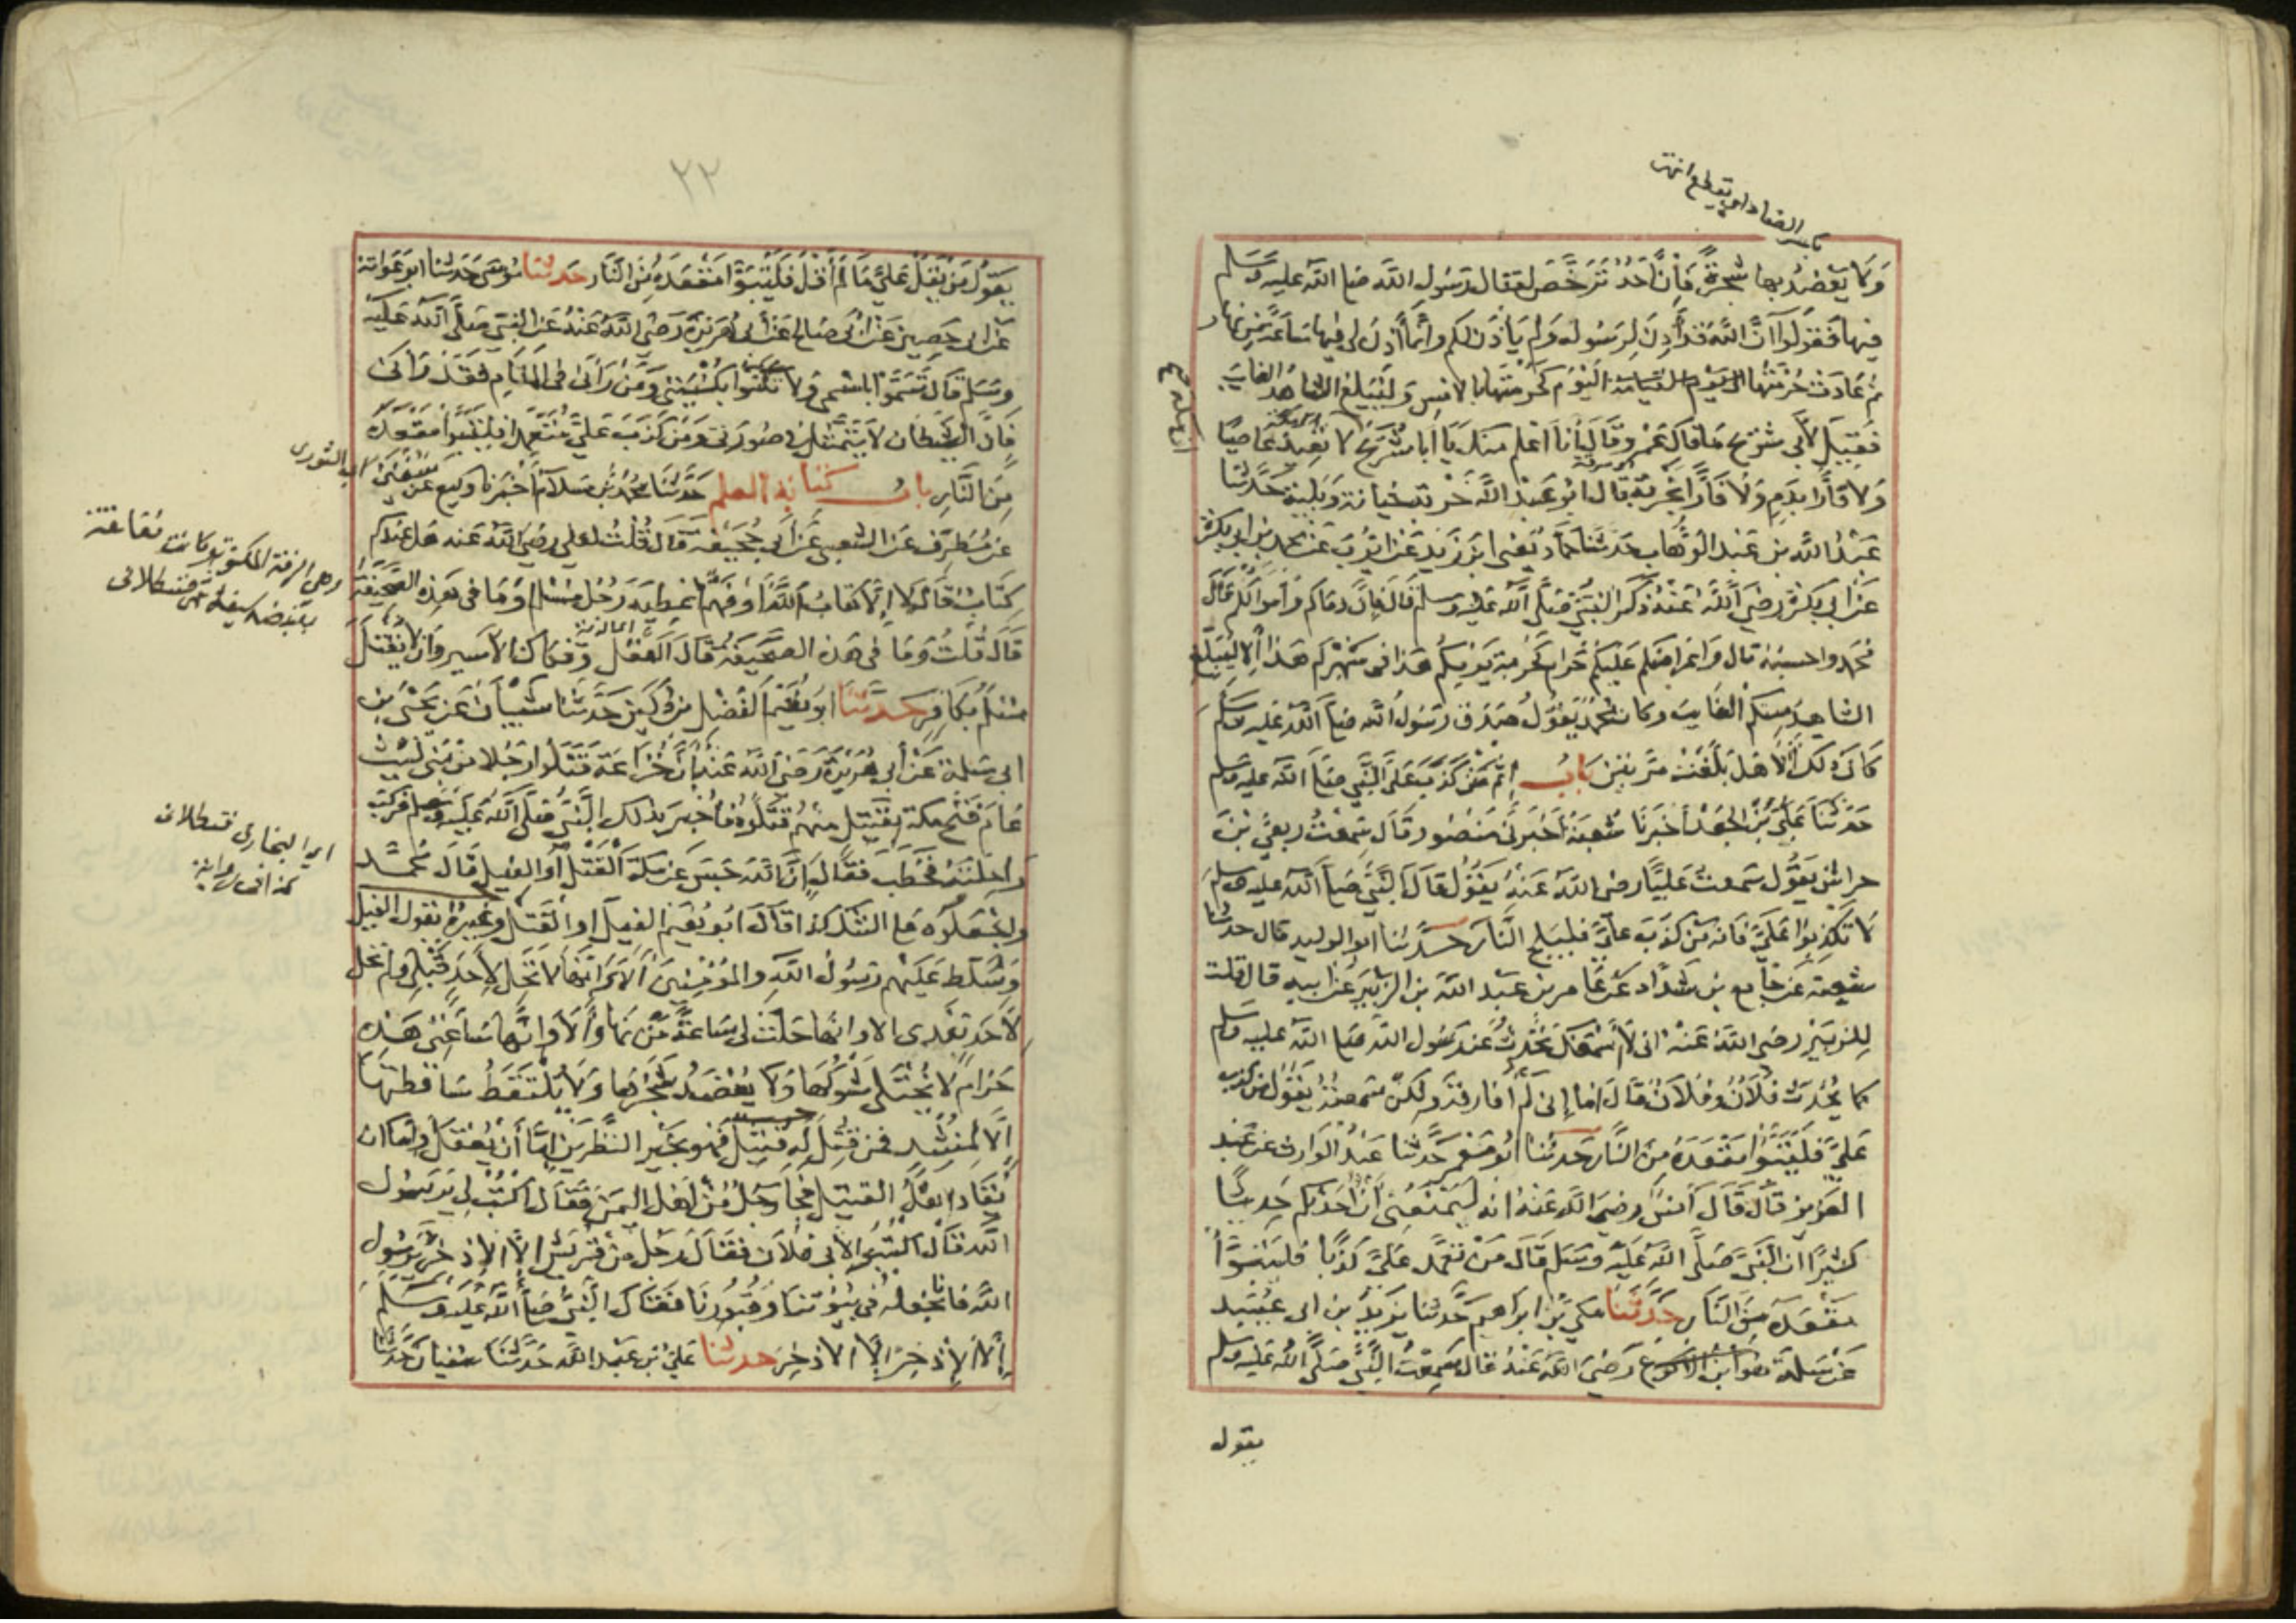 بكسر الضاد اي يقطع انتهى
ولا يعضد بها شجرة فان احد ترخص لقتال رسول الله صلى الله عليه وسلم
فيها فقولوا ان الله قد أذن لرسوله ولم يأذن لكم وانما أذن لي فيها ساعة من نهار
ثم عادت حرمتها اليوم كحرمتها بالامس وليبلغ الشاهد الغايب
فقيل لأبي شريح ما قال عمرو قال أنا اعلم منك يا أبا شريح لا تعيذ عاصيا
ولا فارا بدم ولا فارا بخربة قال ابو عبد الله خربة خيانة وبلية حدثنا
عبد الله بن عبد الوهاب حدثنا حماد يعني ابن زيد عن ايوب عن محمد بن ابي بكرة
عن ابي بكرة رضي الله عنه ذكر النبي صلى الله عليه وسلم قال فان دماكم وأموالكم قال
محمد واحسبه قال واعراضكم عليكم حرام كحرمة يومكم هذا في شهركم هذا ألا ليبلغ
الشاهد منكم الغايب وكان محمد يقول صدق رسول الله صلى الله عليه وسلم
كان ذلك ألا هل بلغت مرتين باب إثم من كذب على النبي صلى الله عليه وسلم
حدثنا علي بن الجعد أخبرنا شعبة أخبرني منصور قال سمعت ربعي بن
حراش يقول سمعت عليا رضي الله عنه يقول قال النبي صلى الله عليه وسلم
لا تكذبوا علي فانه من كذب علي فليلج النار حدثنا ابو الوليد قال حدثنا
شعبة عن جامع بن شداد عن عامر بن عبد الله بن الزبير عن ابيه قال قلت
للزبير رضي الله عنه اني لا أسمعك تحدث عن رسول الله صلى الله عليه وسلم
كما يحدث فلان وفلان قال اما إني لم أفارقه ولكن سمعته يقول من كذب
علي فليتبوأ مقعده من النار حدثنا ابو معمر حدثنا عبد الوارث عن عبد
العزيز قال قال أنس رضي الله عنه انه ليمنعني أن احدثكم حديثا
كثيرا ان النبي صلى الله عليه وسلم قال من تعمد علي كذبا فليتبوأ
مقعده من النار حدثنا مكي بن ابراهيم حدثنا يزيد بن ابي عبيد
عن سلمة هو ابن الاكوع رضي الله عنه قال سمعت النبي صلى الله عليه وسلم
يقول
٢٢
يقول من يقل علي ما لم أقل فليتبوأ مقعده من النار حدثنا موسى حدثنا ابو عوانة
عن ابي حصين عن ابي صالح عن أبي هريرة رضي الله عنه عن النبي صلى الله عليه
وسلم قال تسموا باسمي ولا تكنوا بكنيتي ومن رآني في المنام فقد رآني
فان الشيطان لا يتمثل في صورتي ومن كذب علي متعمدا فليتبوأ مقعده
من النار باب كتابة العلم حدثنا محمد بن سلام أخبرنا وكيع عن سفيان
اي الثوري
عن مطرف عن الشعبي عن أبي جحيفة قال قلت لعلي رضي الله عنه هل عندكم
كتاب قال لا إلا كتاب الله أو فهم اعطيه رجل مسلم أو ما في هذه الصحيفة
وهي الورقة المكتوبة وكانت معلقة
بقبضة سيفه قسطلاني
قال قلت وما في هذه الصحيفة قال العقل وفكاك الأسير وان لا يقتل
اي الدية
مسلم بكافر حدثنا ابو نعيم الفضل بن دكين حدثنا شيبان عن يحيى بن
ابي سلمة عن أبي هريرة رضي الله عنه أن خزاعة قتلوا رجلا من بني ليث
عام فتح مكة بقتيل منهم قتلوه فأخبر بذلك النبي صلى الله عليه وسلم فركب
راحلته فخطب فقال ان الله حبس عن مكة القتل أو الفيل قال محمد
اي البخاري قسطلاني
كذا في رواية
واجعلوه على الشك كذا قال ابو نعيم الفيل او القتل وغيره يقول الفيل
وسلط عليهم رسول الله والمؤمنين ألا وانها لا تحل لأحد قبلي ولم تحل
لأحد بعدي الا وانها حلت لي ساعة من نهار ألا وانها ساعتي هذه
حرام لا يختلى شوكها ولا يعضد شجرها ولا يلتقط ساقطتها
إلا لمنشد فمن قتل له قتيل فهو بخير النظرين إما أن يعقل وإما ان
يقاد اهل القتيل فجا رجل من اهل اليمن فقال اكتب لي يا رسول
الله فقال اكتبوا لأبي فلان فقال رجل من قريش إلا الإذخر يا رسول
الله فانا نجعله في بيوتنا وقبورنا فقال النبي صلى الله عليه وسلم
إلا الإذخر إلا الاذخر حدثنا علي بن عبد الله حدثنا سفيان حدثنا